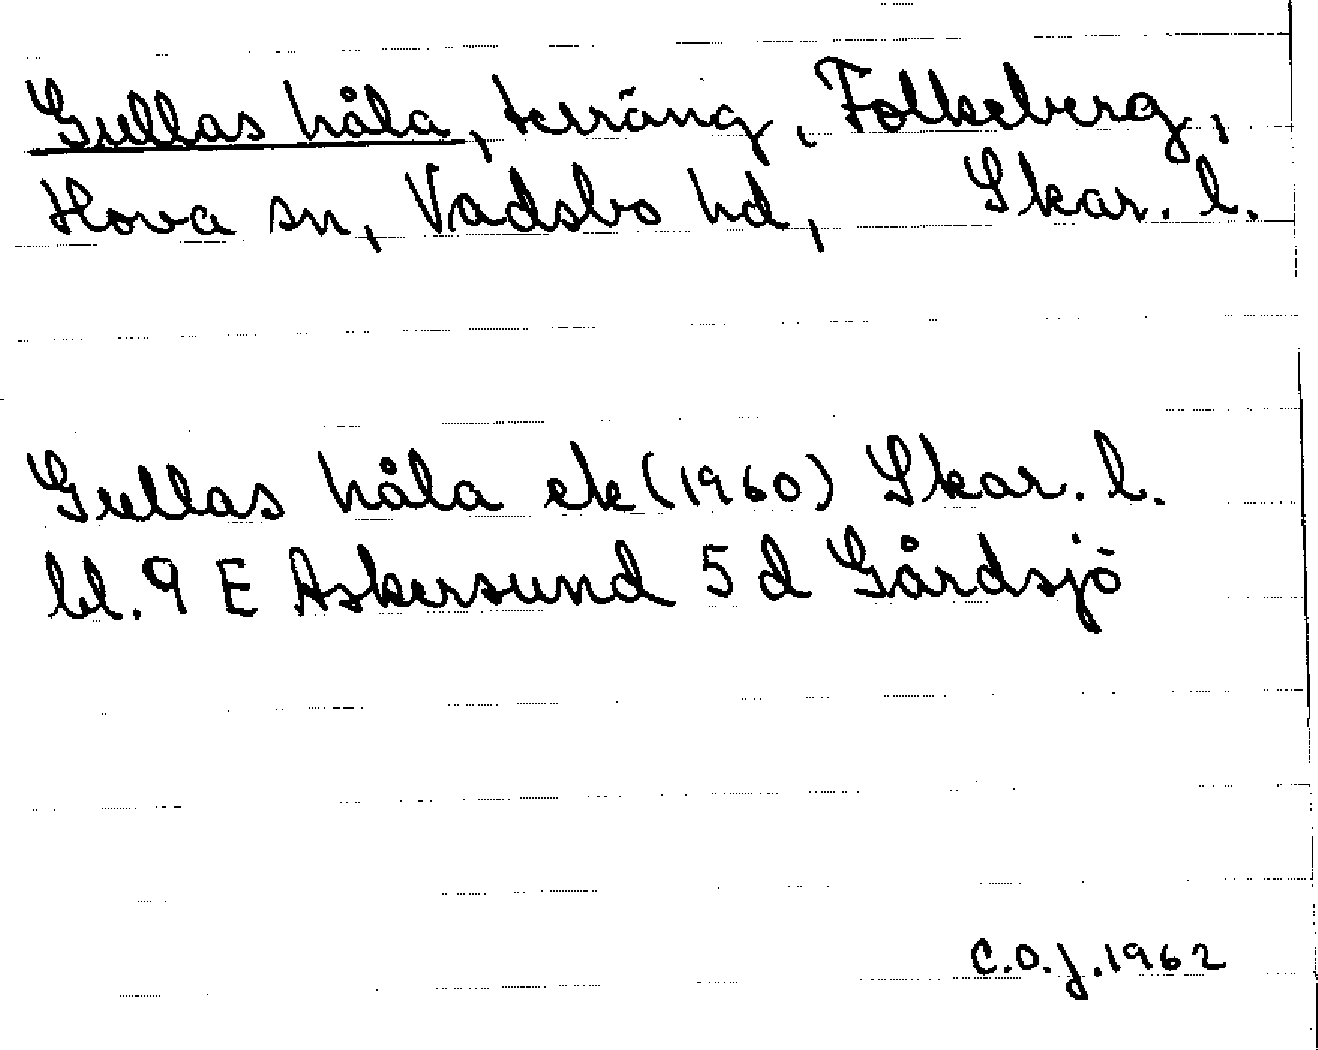 Gullas håla, terräng, Folkeberg,
Hova sn, Vadsbo hd, Skar. l.
Gullas håla ek (1960) Skar. l.
bl. 9 E Askersund 5 d Gårdsjö
C.O.J. 1962